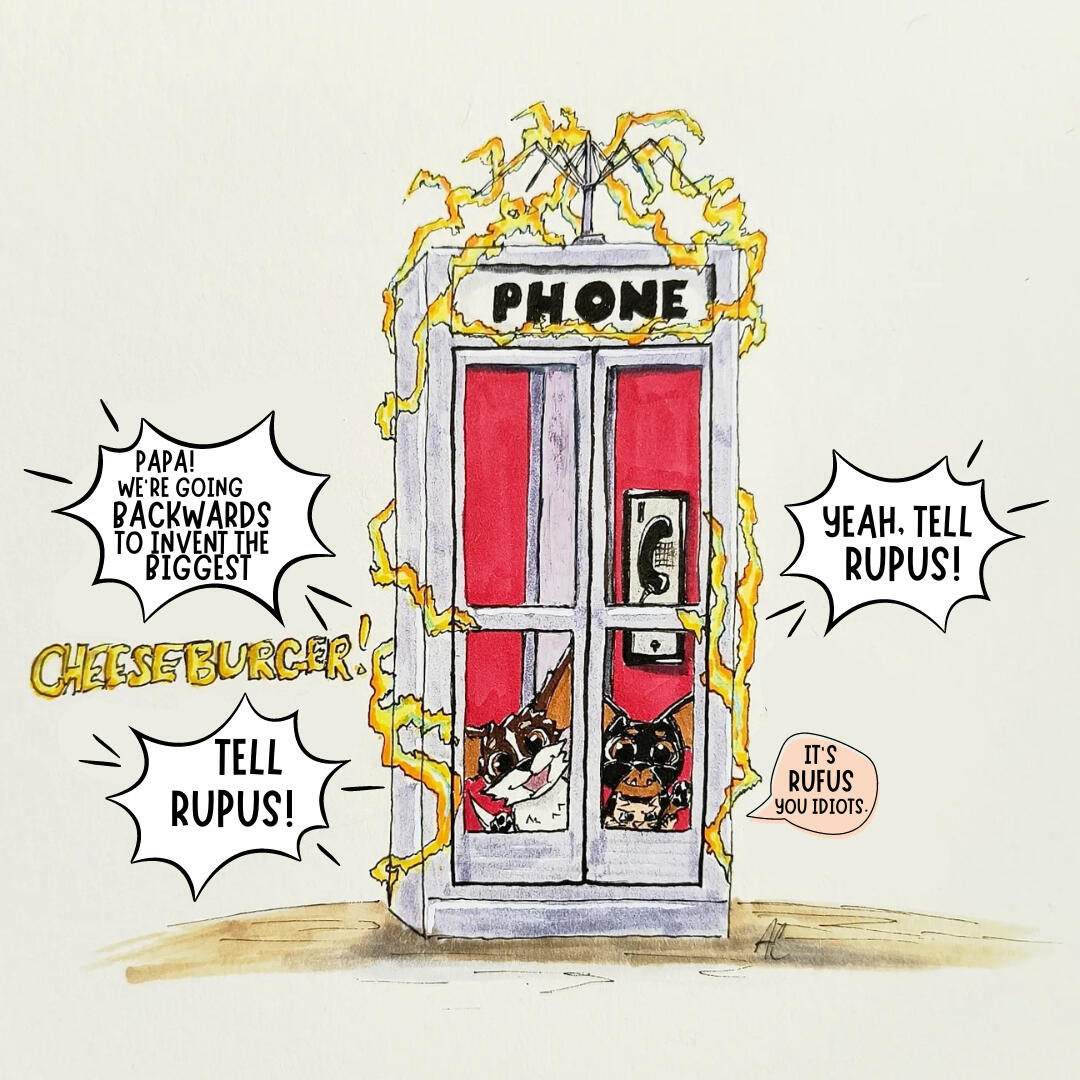 PHONE
PAPA!
WE'RE GOING
BACKWARDS
TO INVENT THE
BIGGEST
CHEESEBURGER!
TELL
RUPUS!
YEAH, TELL
RUPUS!
IT'S
RUFUS
YOU IDIOTS.
AC